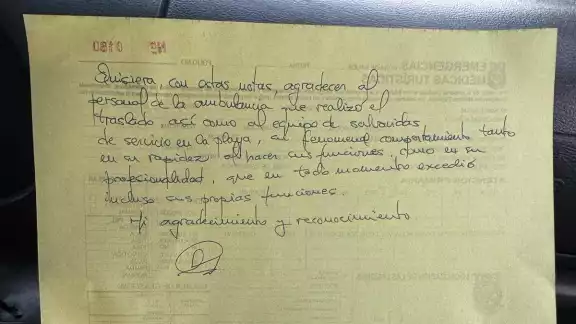 Quisiera, con estas notas, agradecer al
personal de la ambulancia que realizó el
traslado, así como al equipo de salvavidas
de servicio en la playa, su fenomenal comportamiento tanto
en su rapidez al hacer sus funciones, como en su
profesionalidad, que en todo momento excedió
incluso sus propias funciones.
Mi agradecimiento y reconocimiento